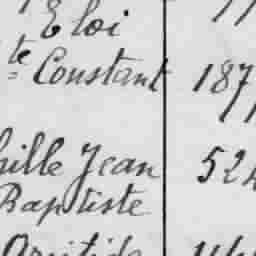 Eloi
te Constant 187
ille Jean 524
Baptiste